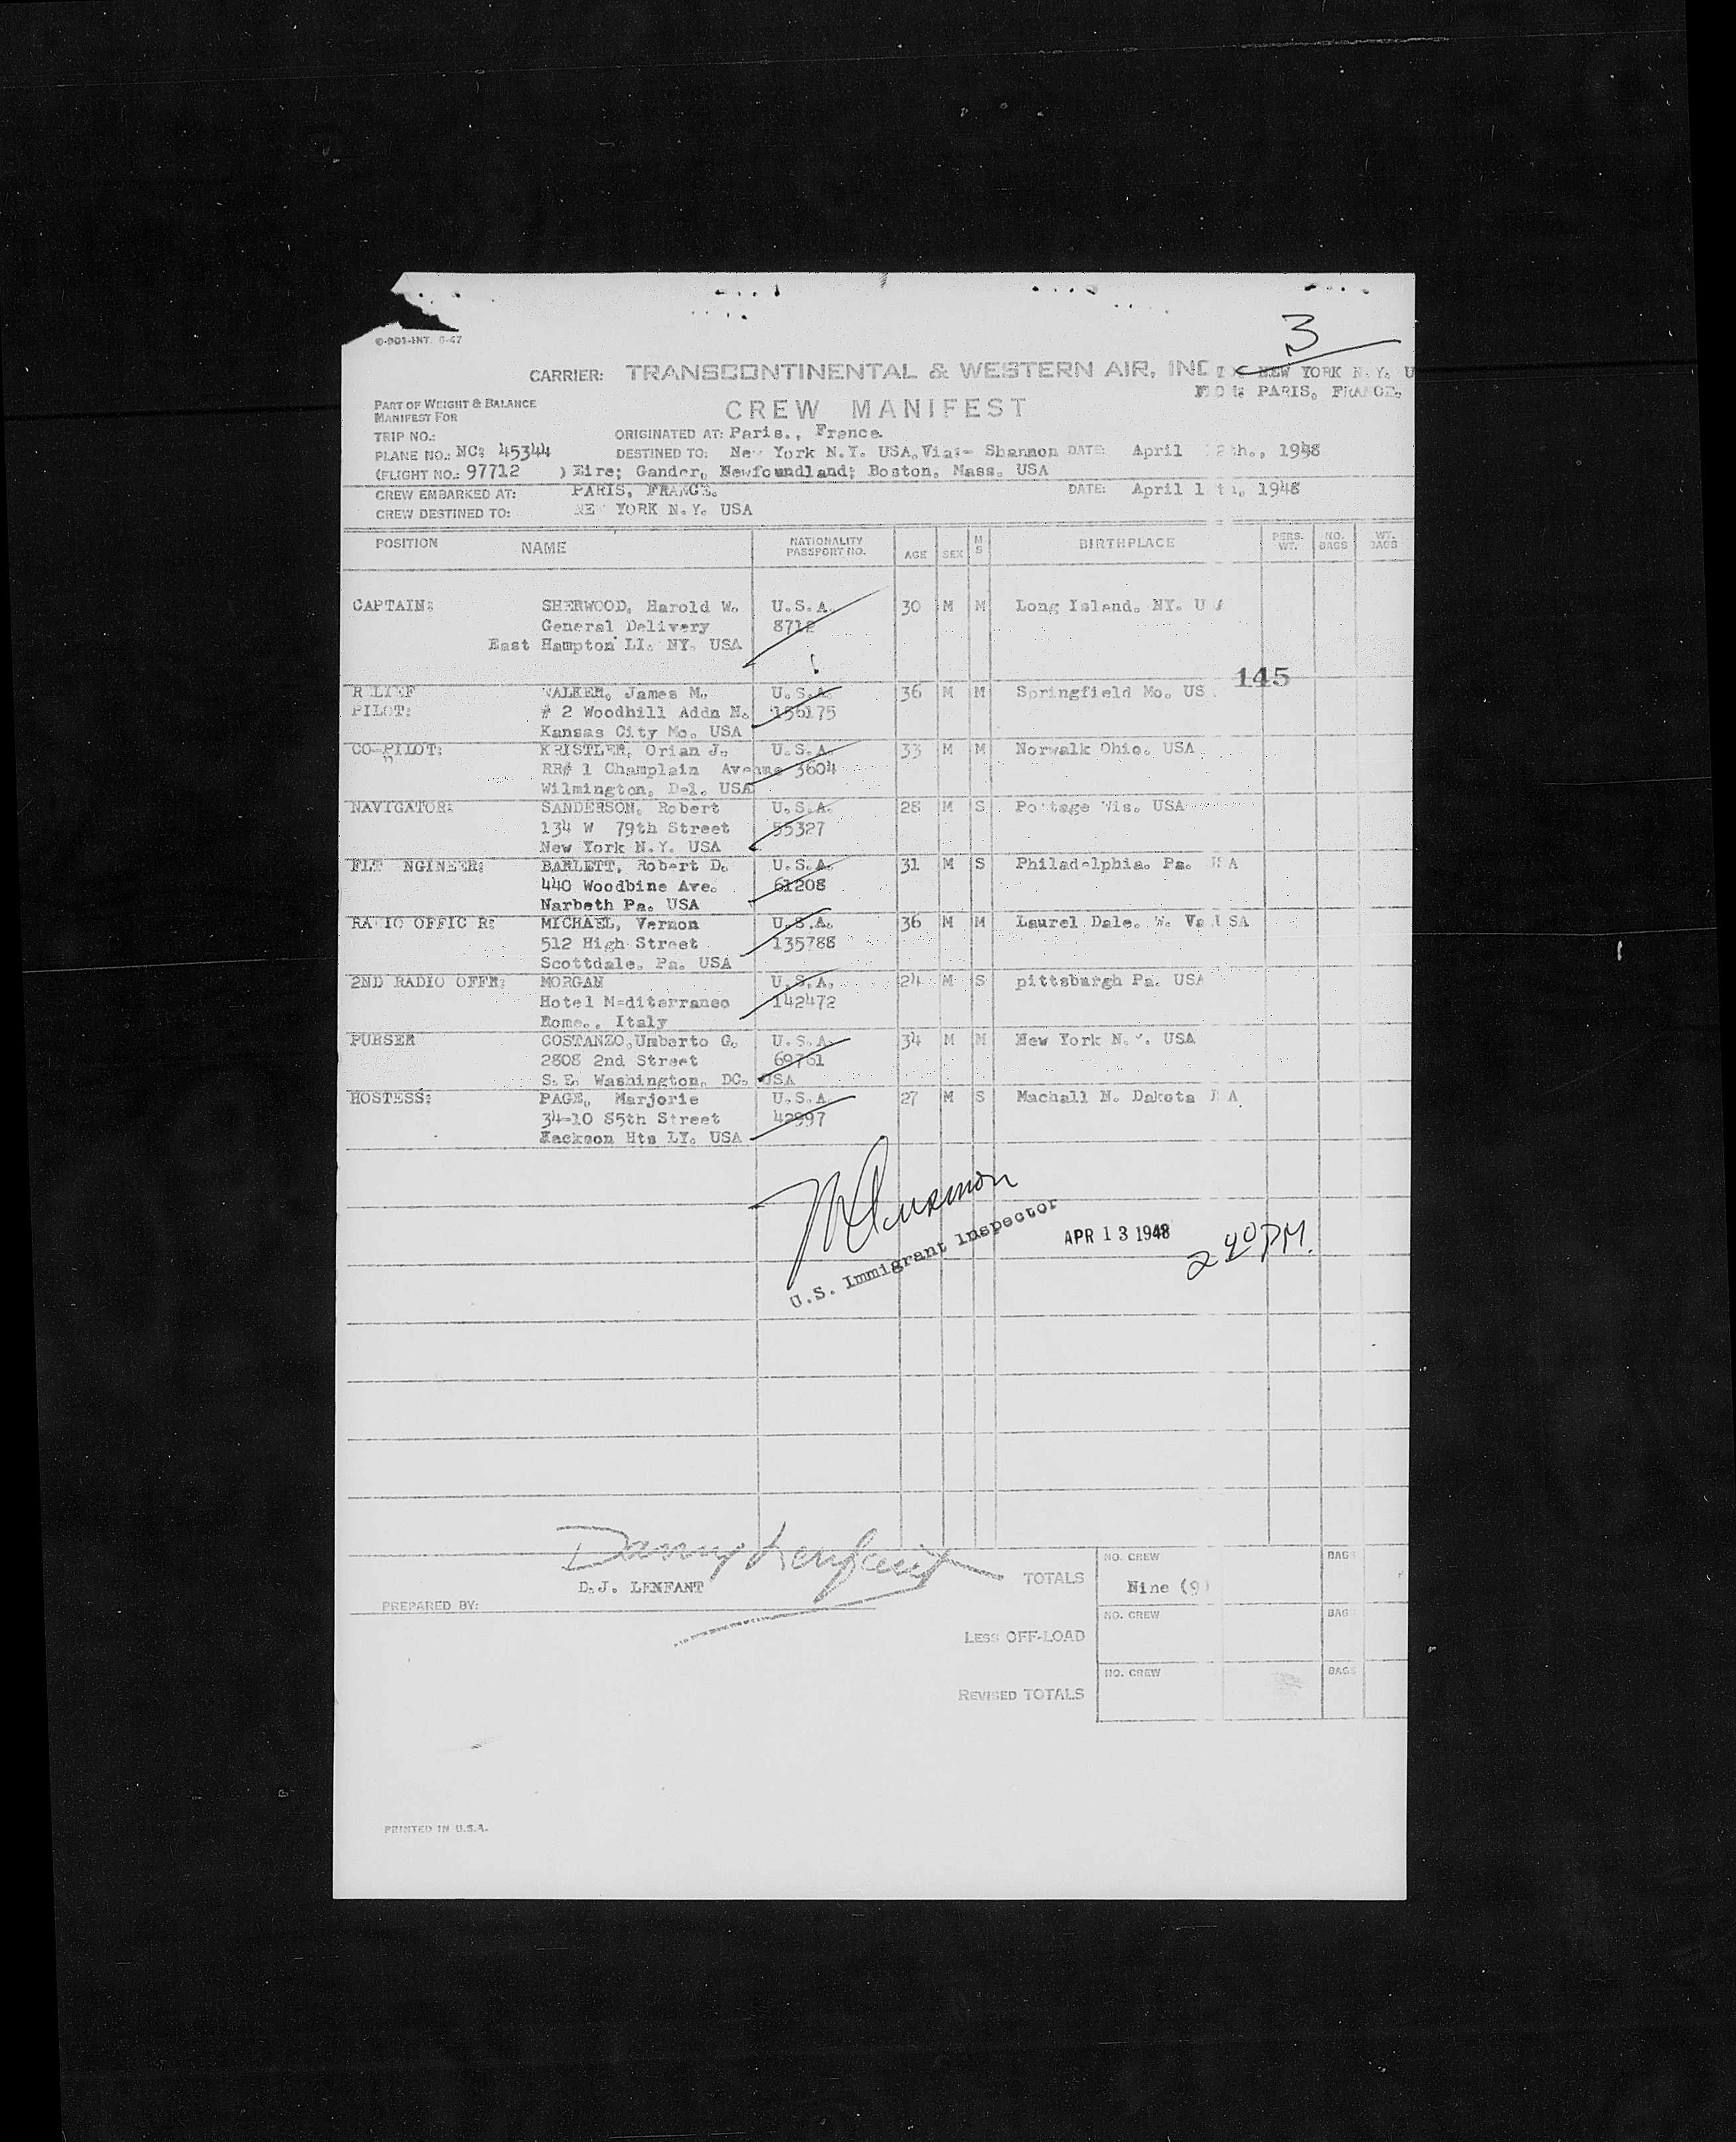 O-901-INT. 6-47
3
CARRIER: TRANSCONTINENTAL & WESTERN AIR, INC
NEW YORK N.Y. U
PARIS, FRANCE,
PART OF WEIGHT & BALANCE
MANIFEST FOR
CREW MANIFEST
TRIP NO.: ORIGINATED AT: Paris., France.
PLANE NO.: NC: 45344 DESTINED TO: New York N.Y. USA, Via:- Shannon DATE: April 2th., 1948
(FLIGHT NO.: 97712 ) Eire; Gander, Newfoundland; Boston, Mass. USA
CREW EMBARKED AT: PARIS, FRANCE. DATE: April 1 th, 1948
CREW DESTINED TO: NEW YORK N.Y. USA
POSITION NAME NATIONALITY PASSPORT NO. AGE SEX M S BIRTHPLACE PERS. WT. NO. BAGS WT. BAGS
CAPTAIN: SHERWOOD, Harold W. U.S.A. 30 M M Long Island. NY. U A
General Delivery 8712
East Hampton LI. NY. USA
145
RELIEF WALKER, James M. U.S.A. 36 M M Springfield Mo. US
PILOT: # 2 Woodhill Addn N. 156175
Kansas City Mo. USA
CO-PILOT: KRISTLER, Orian J. U.S.A. 33 M M Norwalk Ohio. USA
RR# 1 Champlain Avenue 3604
Wilmington, Del. USA
NAVIGATOR: SANDERSON, Robert U.S.A. 28 M S Pottage Wis. USA
134 W 79th Street 55327
New York N.Y. USA
FLT NGINEER: BARLETT, Robert D. U.S.A. 31 M S Philadelphia. Pa. USA
440 Woodbine Ave. 61208
Narbeth Pa. USA
RADIO OFFIC R: MICHAEL, Vernon U.S.A. 36 M M Laurel Dale. W. Va USA
512 High Street 135788
Scottdale. Pa. USA
2ND RADIO OFFR: MORGAN U.S.A. 24 M S pittsburgh Pa. USA
Hotel Mediterraneo 142472
Rome., Italy
PURSER COSTANZO, Umberto G. U.S.A. 34 M M New York N.Y. USA
2808 2nd Street 69761
S.E. Washington, DC. USA
HOSTESS: PAGE, Marjorie U.S.A. 27 M S Machall N. Dakota U A
34-10 85th Street 42997
Jackson Hts LY. USA
U.S. Immigrant Inspector
APR 13 1948
2 40 PM.
Danny Lenfant
D.J. LENFANT
PREPARED BY:
TOTALS NO. CREW Nine (9) BAGS
LESS OFF-LOAD NO. CREW BAGS
REVISED TOTALS NO. CREW BAGS
PRINTED IN U.S.A.